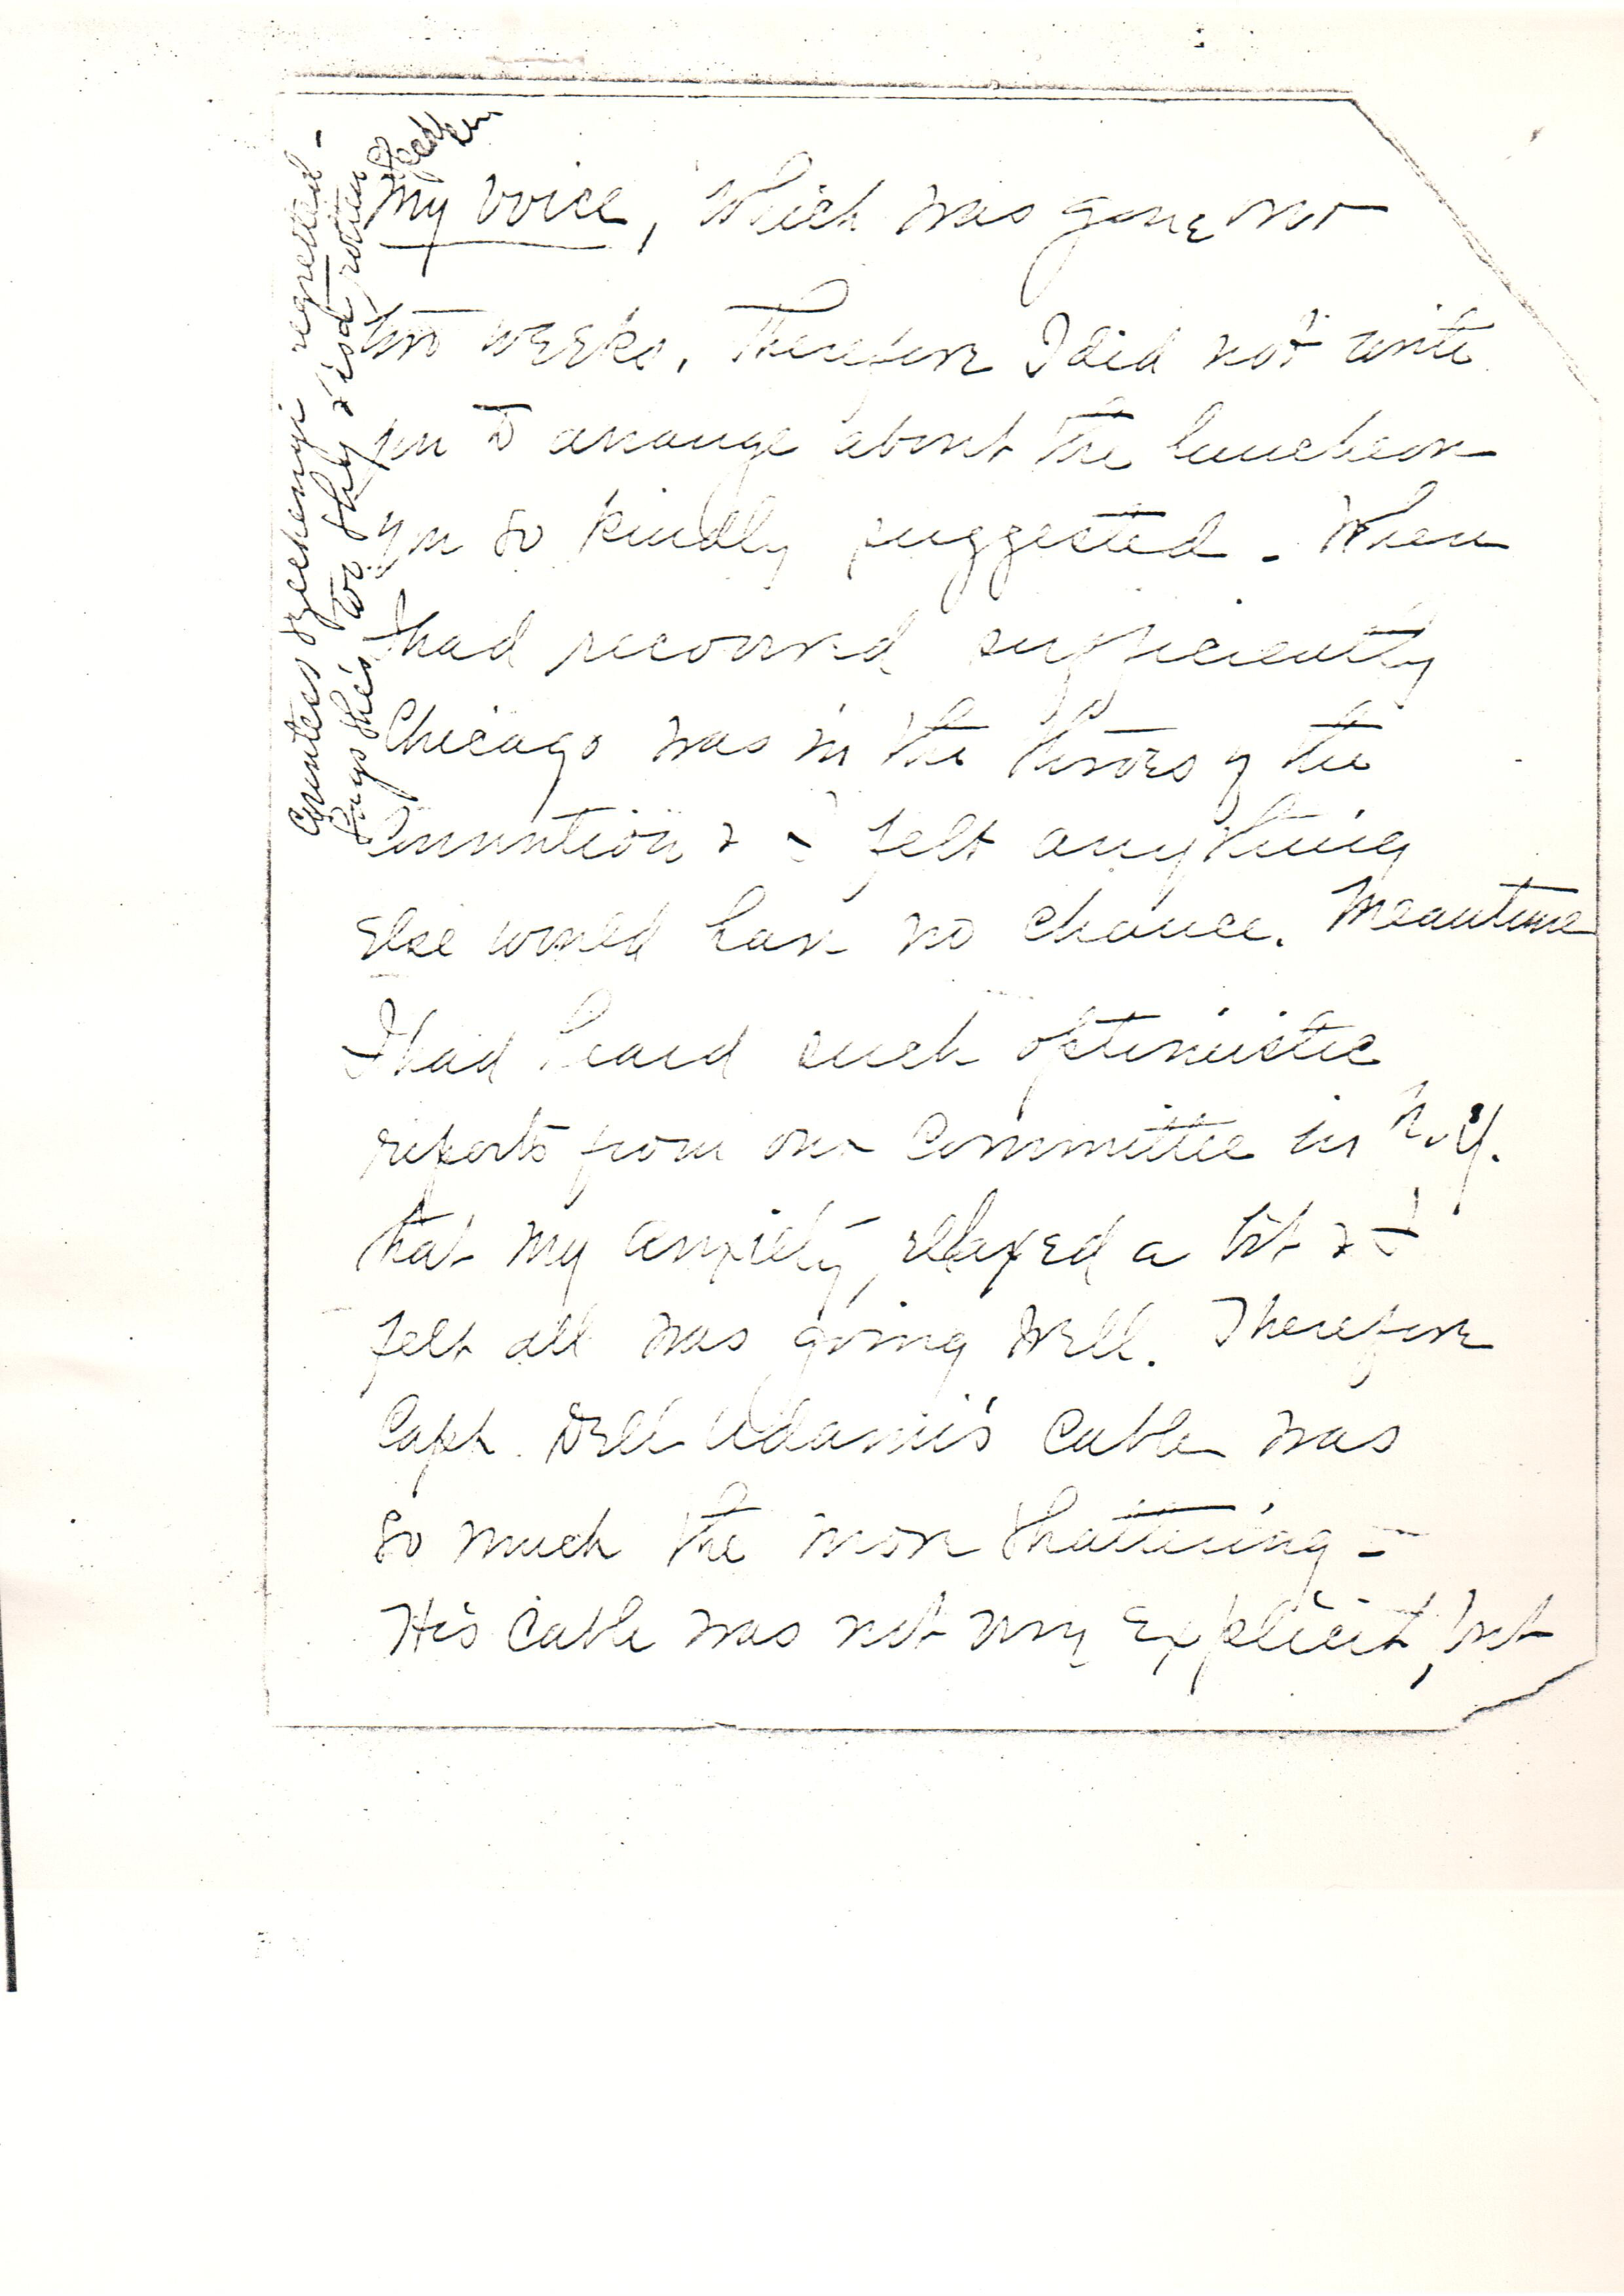 my voice, which was gone over
two weeks. Therefore I did not write
you to arrange about the luncheon
you so kindly suggested. When
I had recovered sufficiently
Chicago was in the throes of the
Convention & I felt anything
else would have no chance. Meantime
I had heard such optimistic
reports from our Committee in N.Y.
that my anxiety relaxed a bit & I
felt all was going well. Therefore
Capt. Dell Adami's cable was
so much the more shattering -
His cable was not very explicit, but
Countess Szechenyi regretted -
Says she's too shy & is a rotten
speaker